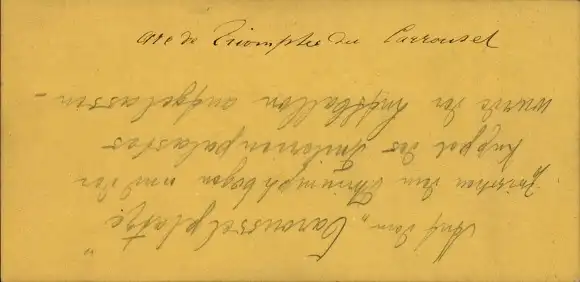 Arc de Triomphe du Carrousel
Auf dem „Carousselplatze“
zwischen dem Triumphbogen und der
Kuppel des Tuilerienpalastes
wurde der Luftballon aufgelassen –